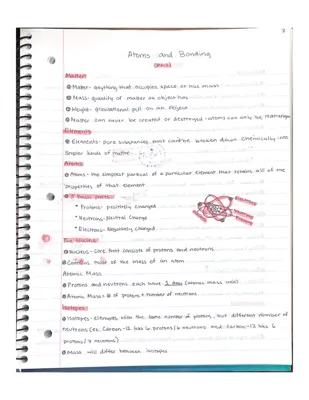 Atoms and Bonding
Matter
Matter- anything that occupies space or has mass
Mass- quantity of matter an object has
Weight- gravitational pull on an object
Matter can never be created or destroyed - atoms can only be rearranged
Elements
Elements- pure substances that cant be broken down chemically into
simpler kinds of matter
Atoms
Atoms- the simplest particle of a particular element that retains all of the
properties of that element
3 basic parts
* Protons- positively charged
* Neutrons- Neutral Charge
* Electrons- Negatively charged
The Nucleus
Nucleus- core that consists of protons and neutrons
Contains most of the mass of an atom
Atomic Mass
Protons and neutrons each have 1 amu (atomic mass unit)
Atomic Mass = # of protons + number of neutrons
Isotopes
Isotopes- Elements with the same number of protons, but different number of
neutrons (ex. Carbon-12 has 6 protons/6 neutrons and carbon-13 has 6
protons/7 neutrons)
Mass will differ between isotopes